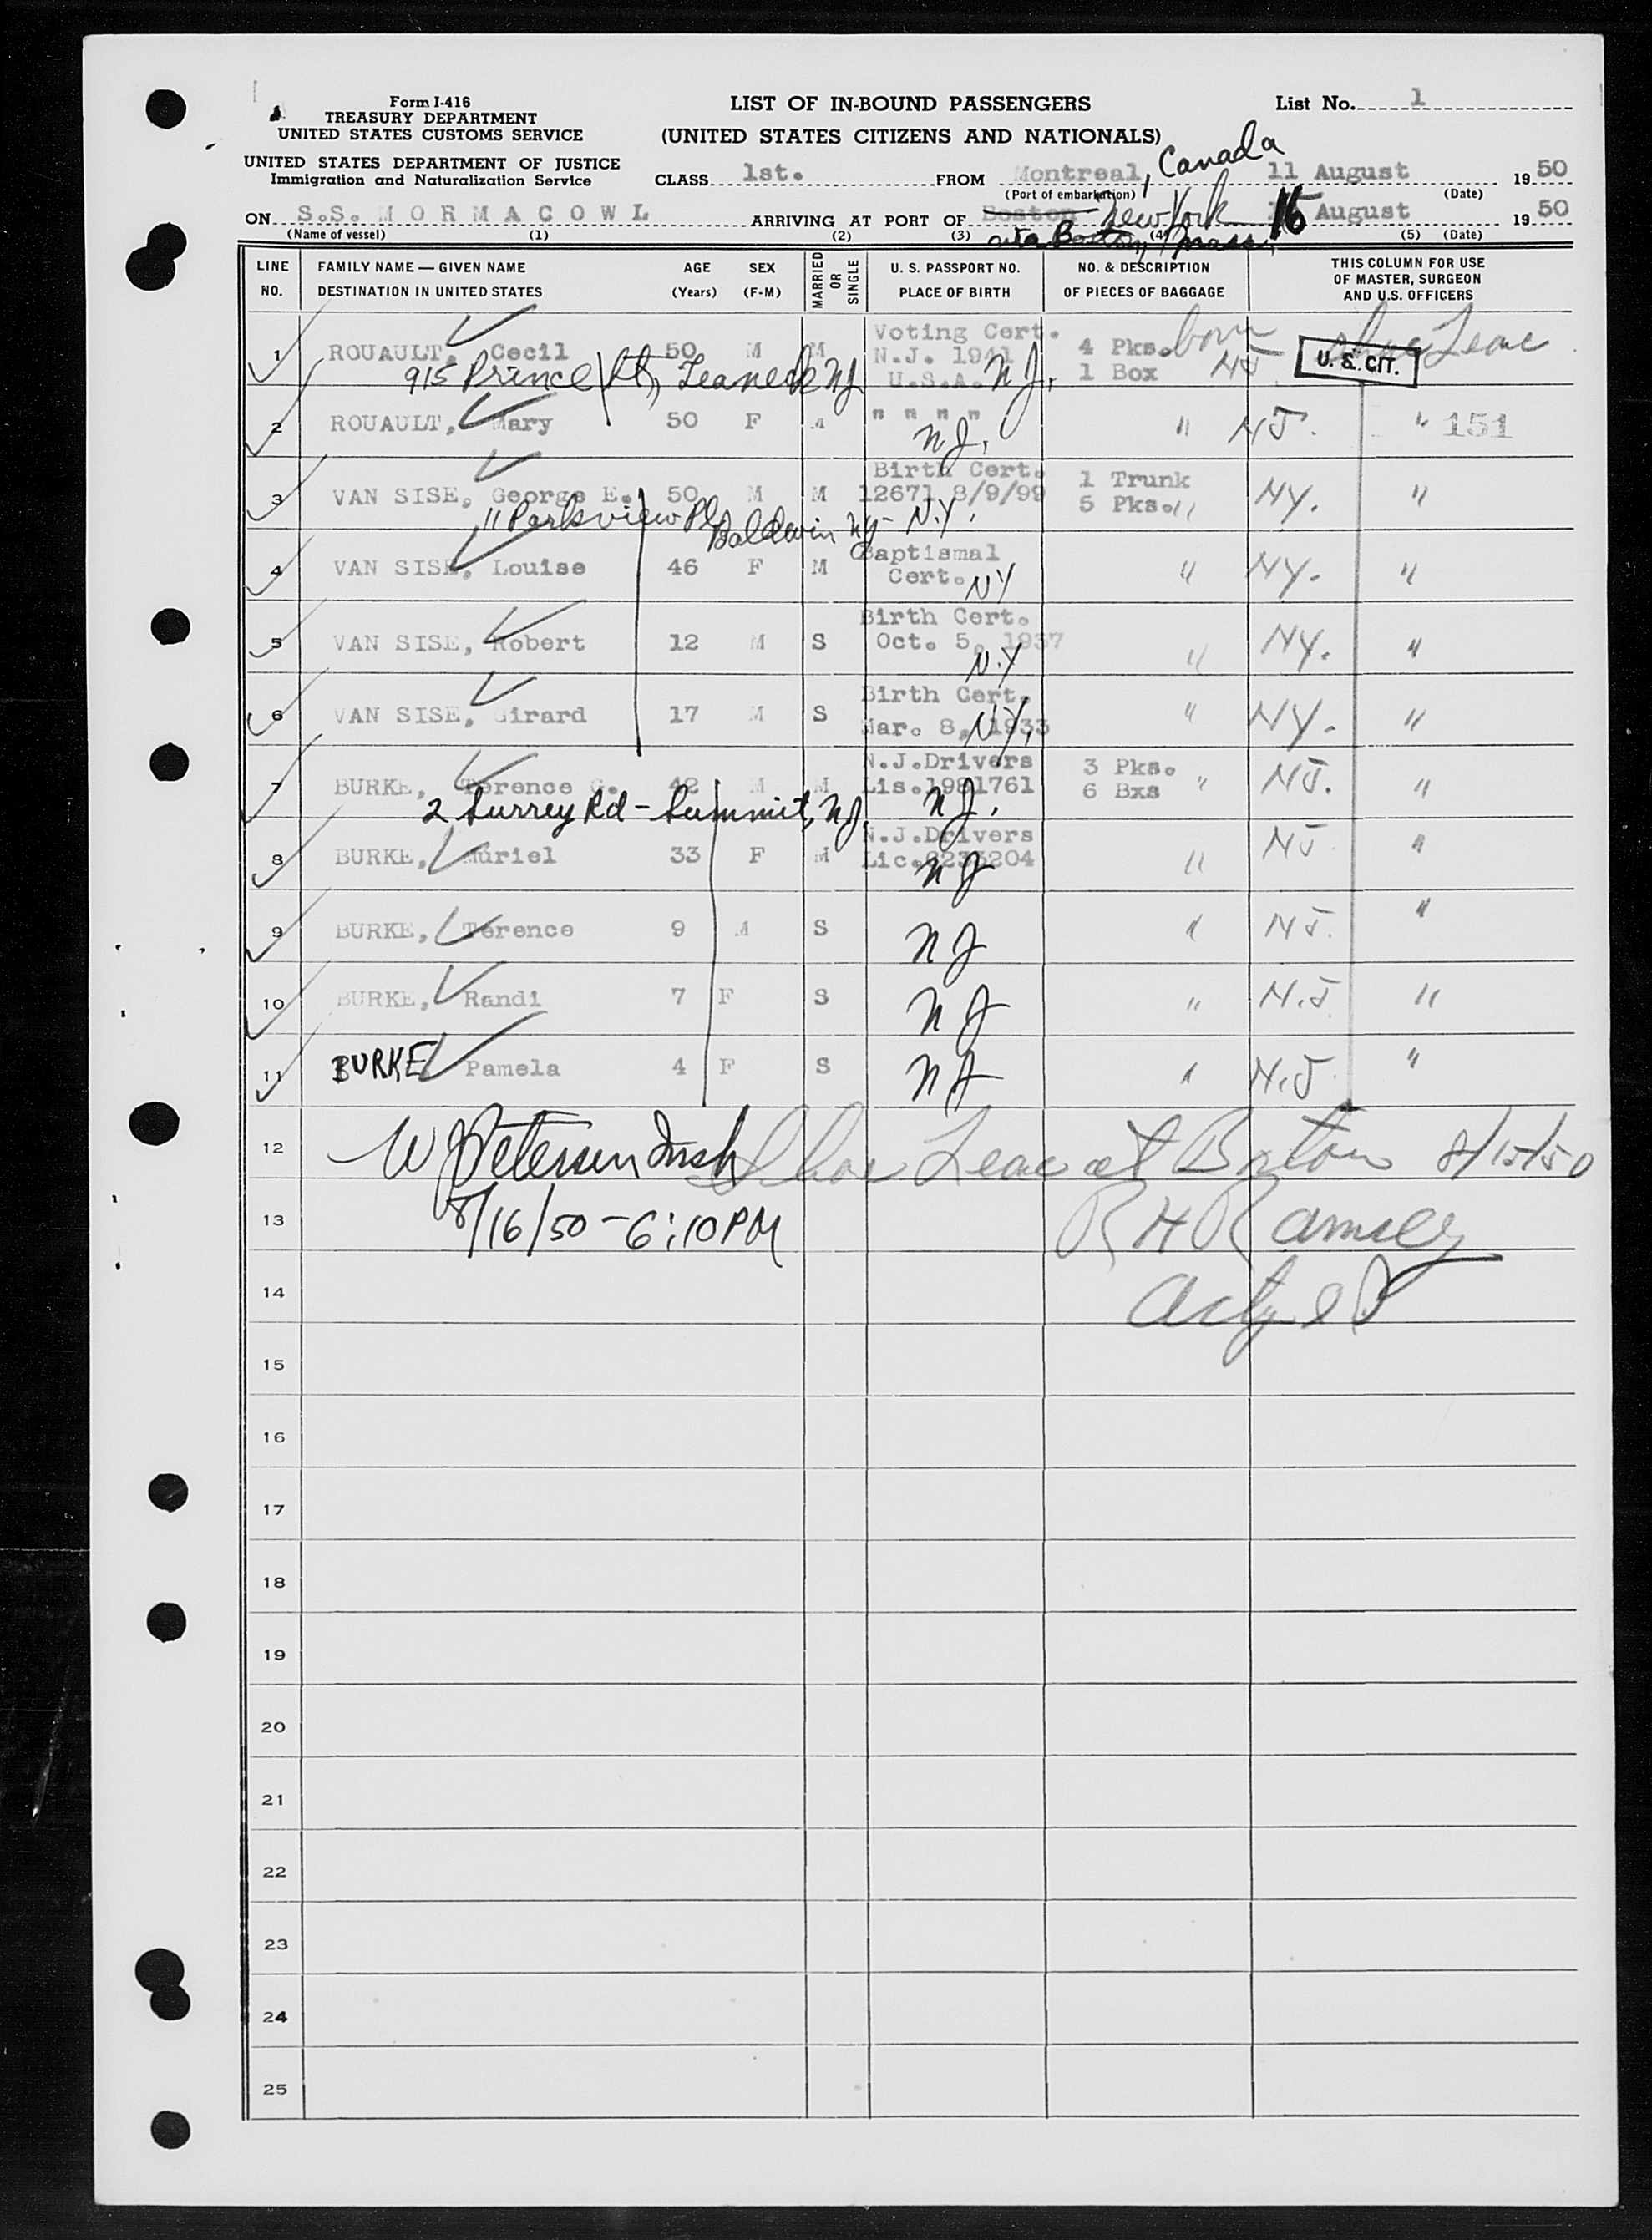 Form I-416
TREASURY DEPARTMENT
UNITED STATES CUSTOMS SERVICE
UNITED STATES DEPARTMENT OF JUSTICE
Immigration and Naturalization Service
LIST OF IN-BOUND PASSENGERS
(UNITED STATES CITIZENS AND NATIONALS)
List No. 1
CLASS 1st. FROM Montreal, Canada 11 August 1950
(Port of embarkation) (Date)
ON S.S. MORMACOWL ARRIVING AT PORT OF Boston New York 16 August 1950
(Name of vessel) (1) (2) (3) via Boston, Mass. (4) (5) (Date)
LINE NO. FAMILY NAME — GIVEN NAME DESTINATION IN UNITED STATES AGE (Years) SEX (F-M) MARRIED OR SINGLE U. S. PASSPORT NO. PLACE OF BIRTH NO. & DESCRIPTION OF PIECES OF BAGGAGE THIS COLUMN FOR USE OF MASTER, SURGEON AND U.S. OFFICERS
1 ROUAULT, Cecil 50 M M Voting Cert. N.J. 1941 U.S.A. NJ. 4 Pks. 1 Box born NJ U.S. CIT. Shore Leave
915 Prince St, Teaneck NJ
2 ROUAULT, Mary 50 F M " " " " NJ. " NJ. " 151
3 VAN SISE, George E. 50 M M Birth Cert. 12671 8/9/99 N.Y. 1 Trunk 5 Pks. " NY. "
11 Parkview Pl Baldwin NY-
4 VAN SISE, Louise 46 F M Baptismal Cert. NY " NY. "
5 VAN SISE, Robert 12 M S Birth Cert. Oct. 5, 1937 N.Y " NY. "
6 VAN SISE, Girard 17 M S Birth Cert. Mar. 8, 1933 NY. " NY. "
7 BURKE, Terence G. 42 M M N.J.Drivers Lis.1981761 NJ. 3 Pks. 6 Bxs " NJ. "
2 Surrey Rd - Summit, NJ.
8 BURKE, Muriel 33 F M N.J.Drivers NJ " NJ "
9 BURKE, Terence 9 M S NJ " NJ. "
10 BURKE, Randi 7 F S NJ " N.J "
11 BURKE, Pamela 4 F S NJ " N.J "
12 W Petersen Insp Shore Leave at Boston 8/15/50
13 8/16/50 - 6:10 PM R H Ramsey
14
15
16
17
18
19
20
21
22
23
24
25